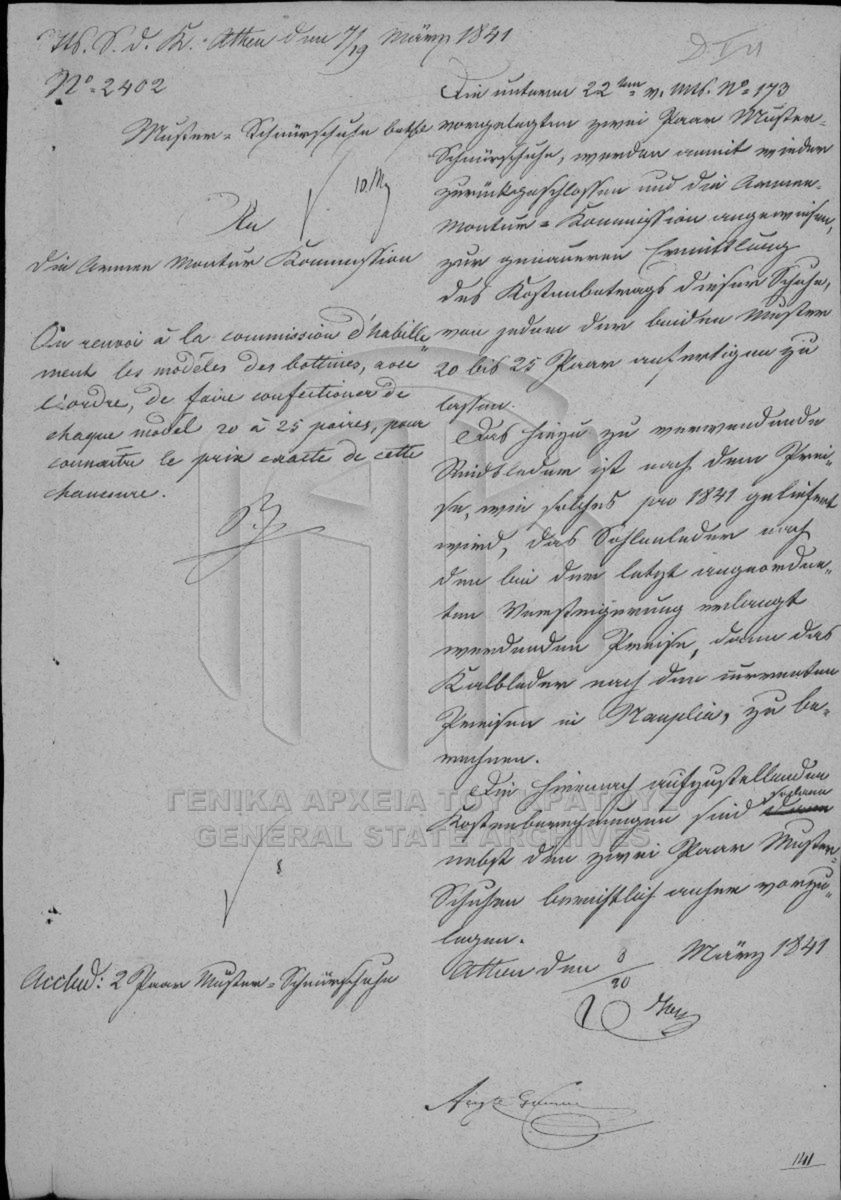 Ms. S. d. K. Athen den 7/19 März 1841
No. 2402
Muster-Schnürschuhe betr.
10. M
An
Die Armee Montur Kommission
On renvoi à la commission d'habille-
ment les modèles des bottines, avec
l'ordre, de faire confectioner de
chaque model 20 à 25 paires, pour
connaitre le prix exacte de cette
chaussure.
8
Acclud: 2 Paar Muster-Schnürschuhe
Die unterm 22ten v. Mts. No. 173
vorgelegten zwei Paar Muster-
Schnürschuhe, werden anmit wieder
zurückgeschlossen und die Armee-
Montur-Kommission angewiesen,
zur genaueren Ermittlung
des Kostenbetrags dieser Schuhe,
von jedem der beiden Muster
20 bis 25 Paar anfertigen zu
lassen.
Das hiezu zu verwendende
Rindsleder ist nach dem Prei-
se, wie solches pro 1841 geliefert
wird, das Sohlenleder nach
den bei der letzt angeordne-
ten Versteigerung verlangt
werdenden Preise, dann das
Kalbleder nach den currenten
Preisen in Nauplia, zu be-
rechnen.
Die hiernach aufzustellenden
Kostenberechnungen sind sodann
nebst den zwei Paar Muster-
Schuhen berichtlich anher vorzu-
legen.
Athen den 8/20 März 1841
141
ΓΕΝΙΚΑ ΑΡΧΕΙΑ ΤΟΥ ΚΡΑΤΟΥΣ
GENERAL STATE ARCHIVES